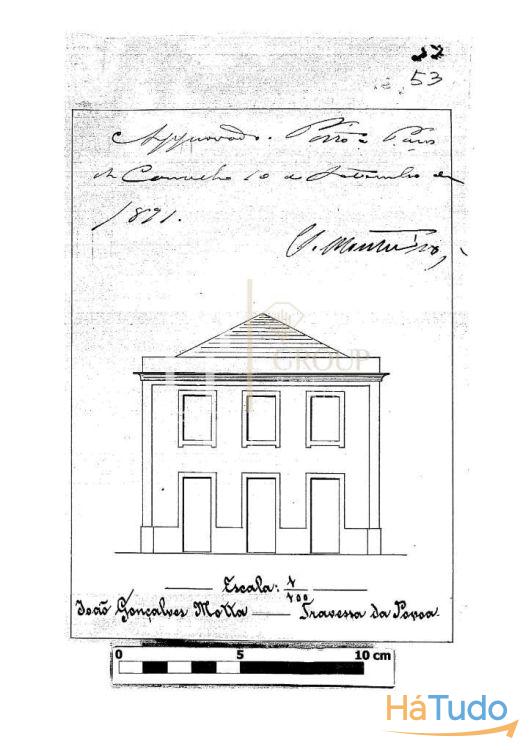 37
53
Approvado. Porto e Paços
do Concelho 10 de Setembro de
1891.
GROUP
Escala: 1/100
João Gonçalves Motta — Travessa da Povoa
0 5 10 cm
HáTudo